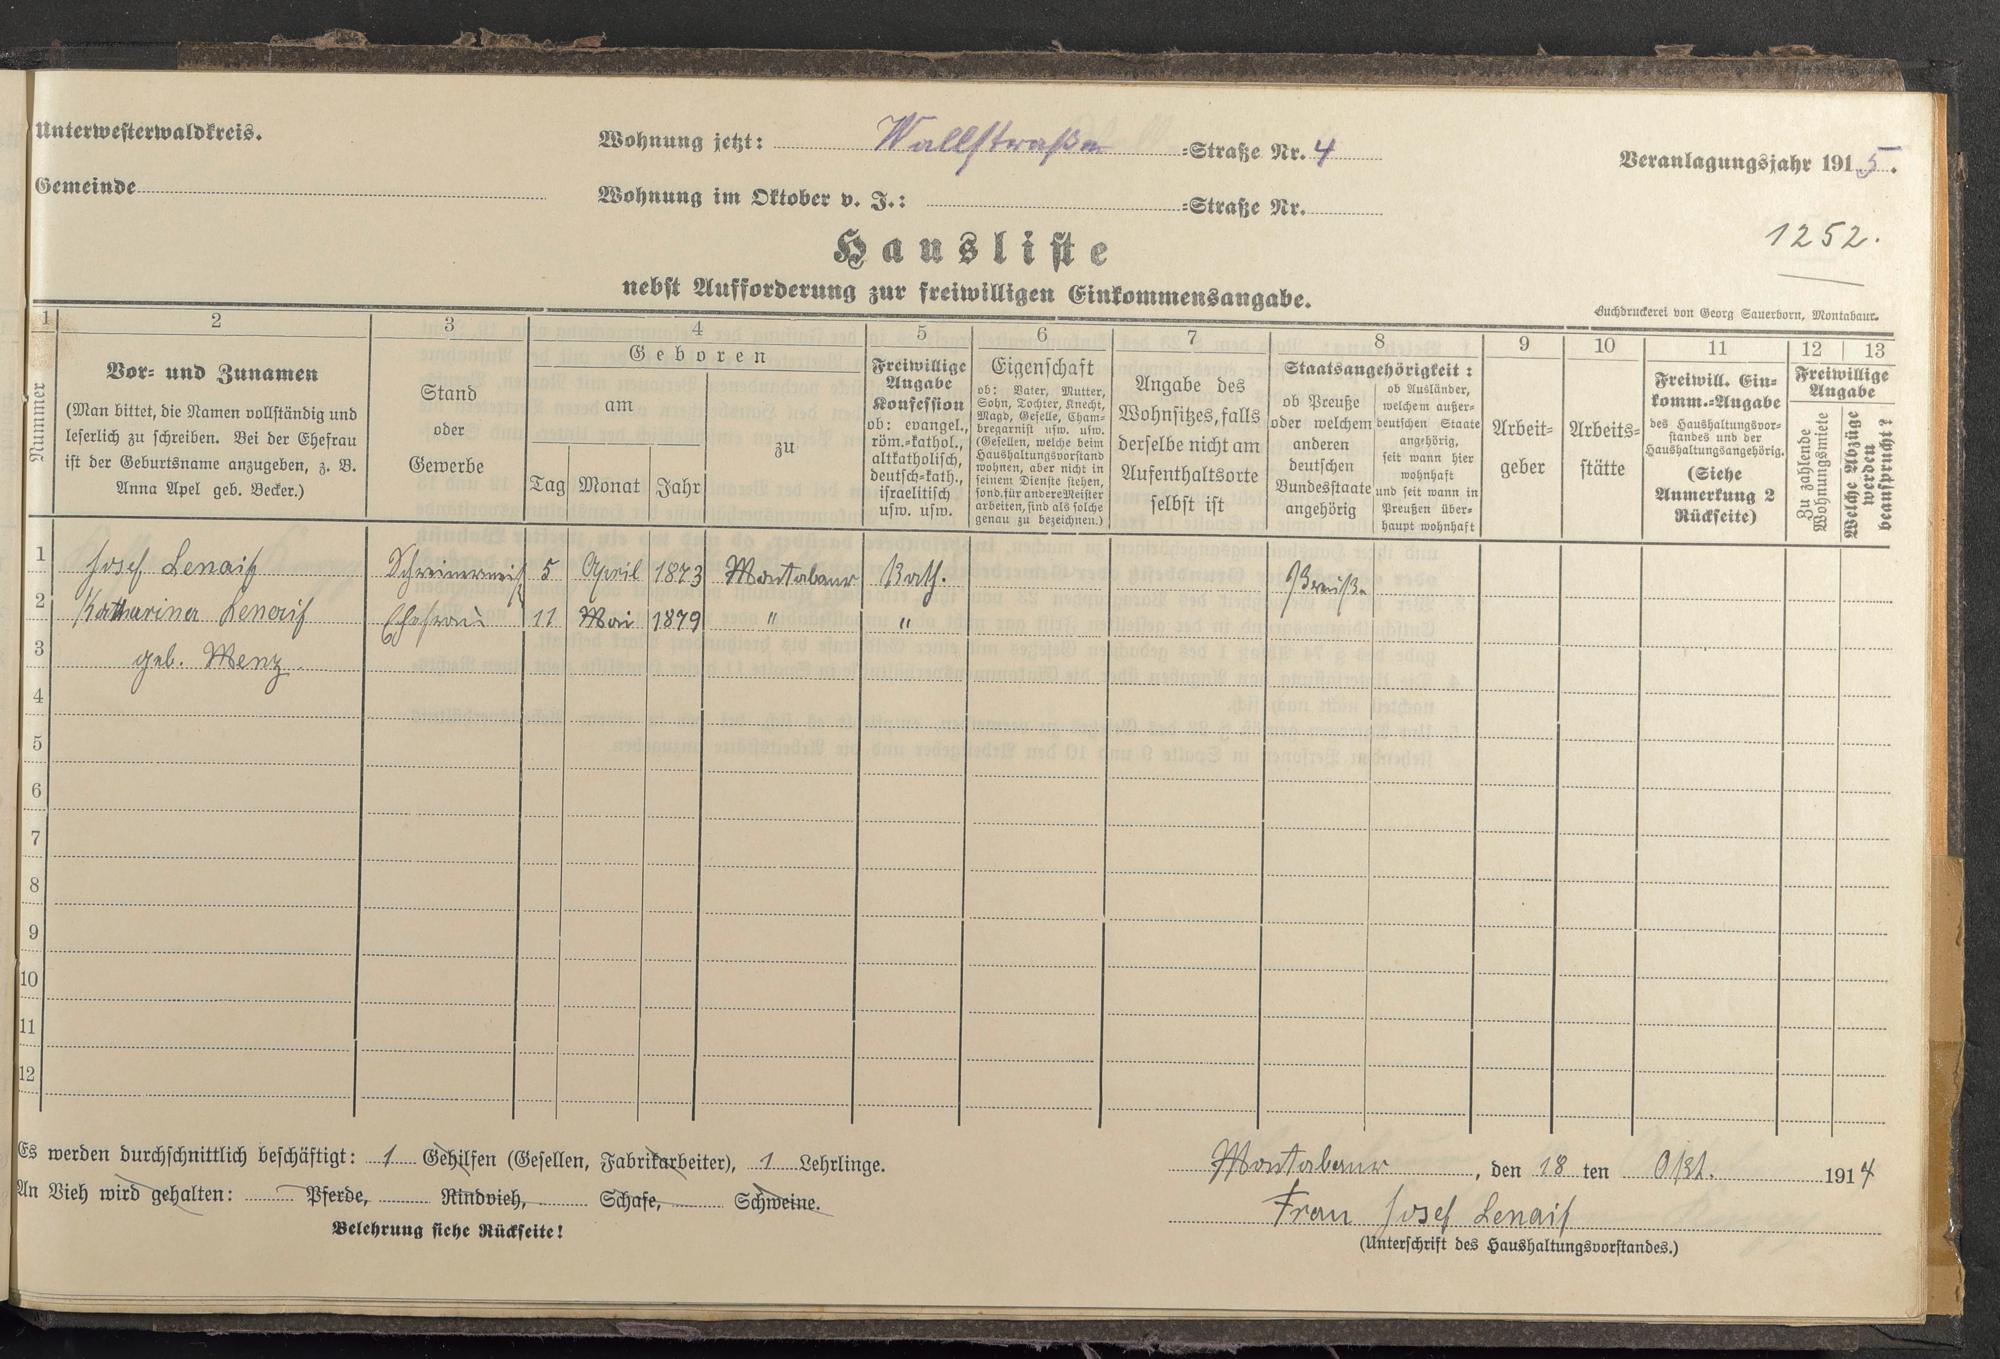 Unterwesterwaldkreis.
Gemeinde
Wohnung jetzt: Wallstraße -Straße Nr. 4
Wohnung im Oktober v. J.: -Straße Nr.
Veranlagungsjahr 1915.
1252.
Hausliste
nebst Aufforderung zur freiwilligen Einkommensangabe.
Buchdruckerei von Georg Sauerborn, Montabaur.
1 2 3 4 5 6 7 8 9 10 11 12 13
Nummer
Vor- und Zunamen
(Man bittet, die Namen vollständig und
leserlich zu schreiben. Bei der Ehefrau
ist der Geburtsname anzugeben, z. B.
Anna Apel geb. Becker.)
Stand
oder
Gewerbe
Geboren
am
Tag Monat Jahr
zu
Freiwillige
Angabe
Konfession
ob: evangel.,
röm.-kathol.,
altkatholisch,
deutsch-kath.,
israelitisch
usw. usw.
Eigenschaft
ob: Vater, Mutter,
Sohn, Tochter, Knecht,
Magd, Geselle, Cham-
bregarnist usw. usw.
(Gesellen, welche beim
Haushaltungsvorstand
wohnen, aber nicht in
seinem Dienste stehen,
sond. für andere Meister
arbeiten, sind als solche
genau zu bezeichnen.)
Angabe des
Wohnsitzes, falls
derselbe nicht am
Aufenthaltsorte
selbst ist
Staatsangehörigkeit:
ob Preuße
oder welchem
anderen
deutschen
Bundesstaate
angehörig
ob Ausländer,
welchem außer-
deutschen Staate
angehörig,
seit wann hier
wohnhaft
und seit wann in
Preußen über-
haupt wohnhaft
Arbeit-
geber
Arbeits-
stätte
Freiwill. Ein-
komm.-Angabe
des Haushaltungsvor-
standes und der
Haushaltungsangehörig.
(Siehe
Anmerkung 2
Rückseite)
Freiwillige
Angabe
Zu zahlende
Wohnungsmiete
Welche Abzüge
werden
gewünscht?
1 Josef Lenaif Schreinermeist 5 April 1873 Montabaur Kath. Preuße
2 Katharina Lenaif Ehefrau 11 Mai 1879 " "
3 geb. Menz
4
5
6
7
8
9
10
11
12
Es werden durchschnittlich beschäftigt: 1 Gehilfen (Gesellen, Fabrikarbeiter), 1 Lehrlinge.
An Vieh wird gehalten: Pferde, Rindvieh, Schafe, Schweine.
Belehrung siehe Rückseite!
Montabaur, den 18 ten Okt. 1914
Frau Josef Lenaif
(Unterschrift des Haushaltungsvorstandes.)